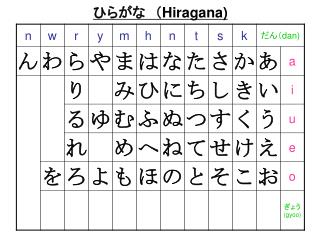 ひらがな (Hiragana)
n w r y m h n t s k だん(dan)
ん わ ら や ま は な た さ か あ a
り み ひ に ち し き い i
る ゆ む ふ ぬ つ す く う u
れ め へ ね て せ け え e
を ろ よ も ほ の と そ こ お o
ぎょう
(gyoo)